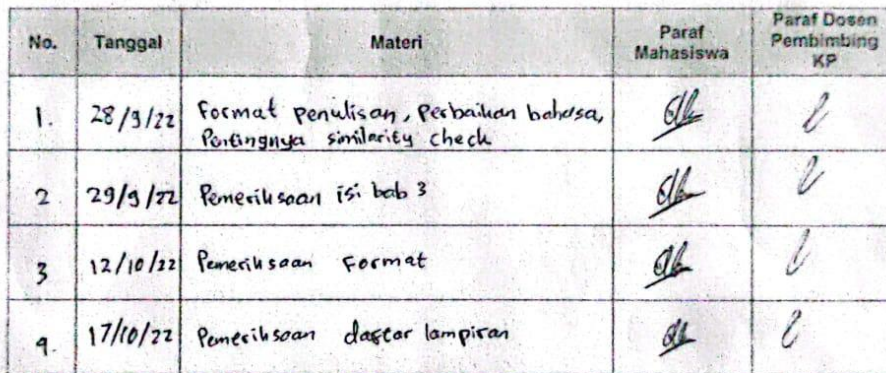 No. Tanggal Materi Paraf Mahasiswa Paraf Dosen Pembimbing KP
1. 28/9/22 Format penulisan, Perbaikan bahasa,
Pentingnya similarity check
2 29/9/22 Pemeriksaan isi bab 3
3 12/10/22 Pemeriksaan Format
4. 17/10/22 Pemeriksaan daftar lampiran